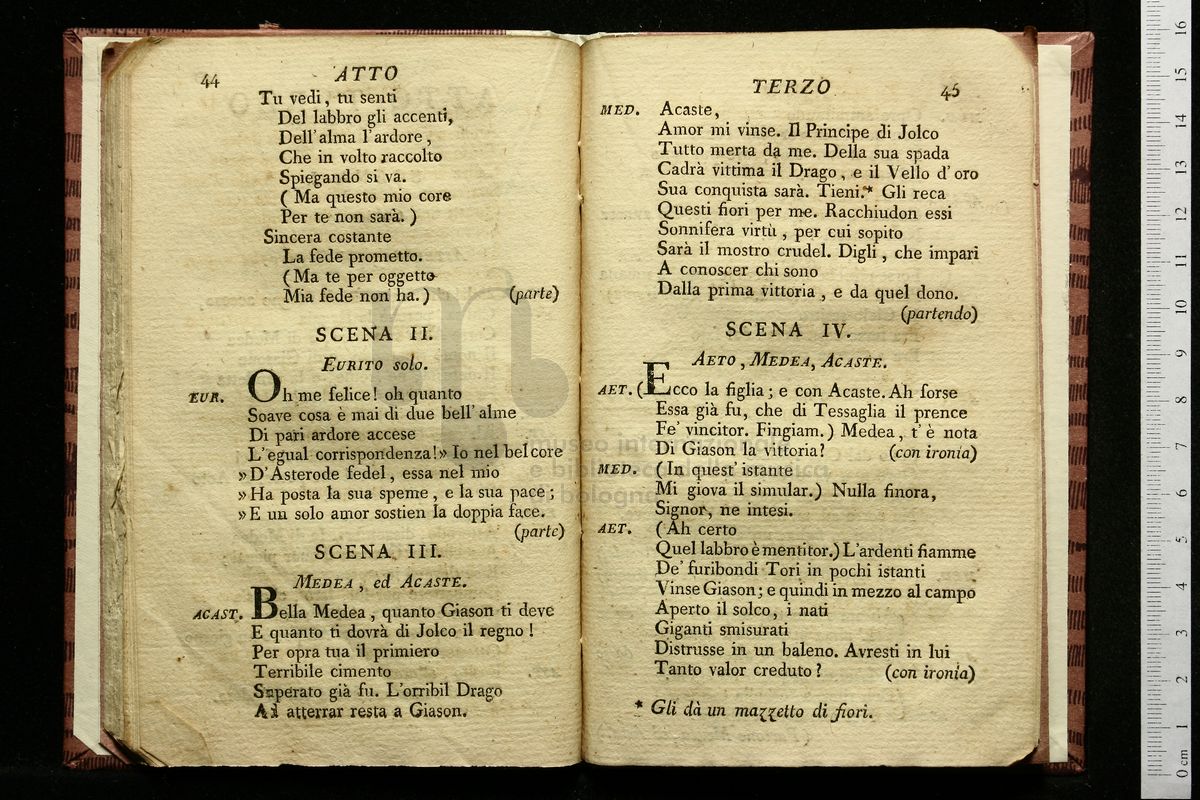 44
ATTO
Tu vedi, tu senti
Del labbro gli accenti,
Dell'alma l'ardore,
Che in volto raccolto
Spiegando si va.
( Ma questo mio core
Per te non sarà. )
Sincera costante
La fede prometto.
( Ma te per oggetto
Mia fede non ha. ) (parte)
SCENA II.
EURITO solo.
EUR. Oh me felice! oh quanto
Soave cosa è mai di due bell'alme
Di pari ardore accese
L'egual corrispondenza!» Io nel bel core
» D'Asterode fedel, essa nel mio
» Ha posta la sua speme, e la sua pace;
» E un solo amor sostien la doppia face.
(parte)
SCENA III.
MEDEA, ed ACASTE.
ACAST. Bella Medea, quanto Giason ti deve
E quanto ti dovrà di Jolco il regno!
Per opra tua il primiero
Terribile cimento
Superato già fu. L'orribil Drago
Ad atterrar resta a Giason.
TERZO
45
MED. Acaste,
Amor mi vinse. Il Principe di Jolco
Tutto merta da me. Della sua spada
Cadrà vittima il Drago, e il Vello d'oro
Sua conquista sarà. Tieni.* Gli reca
Questi fiori per me. Racchiudon essi
Sonnifera virtù, per cui sopito
Sarà il mostro crudel. Digli, che impari
A conoscer chi sono
Dalla prima vittoria, e da quel dono.
(partendo)
SCENA IV.
AETO, MEDEA, ACASTE.
AET. (Ecco la figlia; e con Acaste. Ah forse
Essa già fu, che di Tessaglia il prence
Fe' vincitor. Fingiam.) Medea, t'è nota
Di Giason la vittoria? (con ironia)
MED. (In quest'istante
Mi giova il simular.) Nulla finora,
Signor, ne intesi.
AET. (Ah certo
Quel labbro è mentitor.) L'ardenti fiamme
De' furibondi Tori in pochi istanti
Vinse Giason; e quindi in mezzo al campo
Aperto il solco, i nati
Giganti smisurati
Distrusse in un baleno. Avresti in lui
Tanto valor creduto? (con ironia)
* Gli dà un mazzetto di fiori.
museo internazionale
e biblioteca della musica
di bologna
0 cm 1 2 3 4 5 6 7 8 9 10 11 12 13 14 15 16